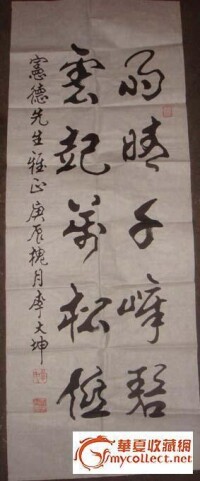 雨晴千嶂碧
雲起萬松低
憲德先生雅正庚辰槐月李大坤
華夏收藏網
mycollect.net